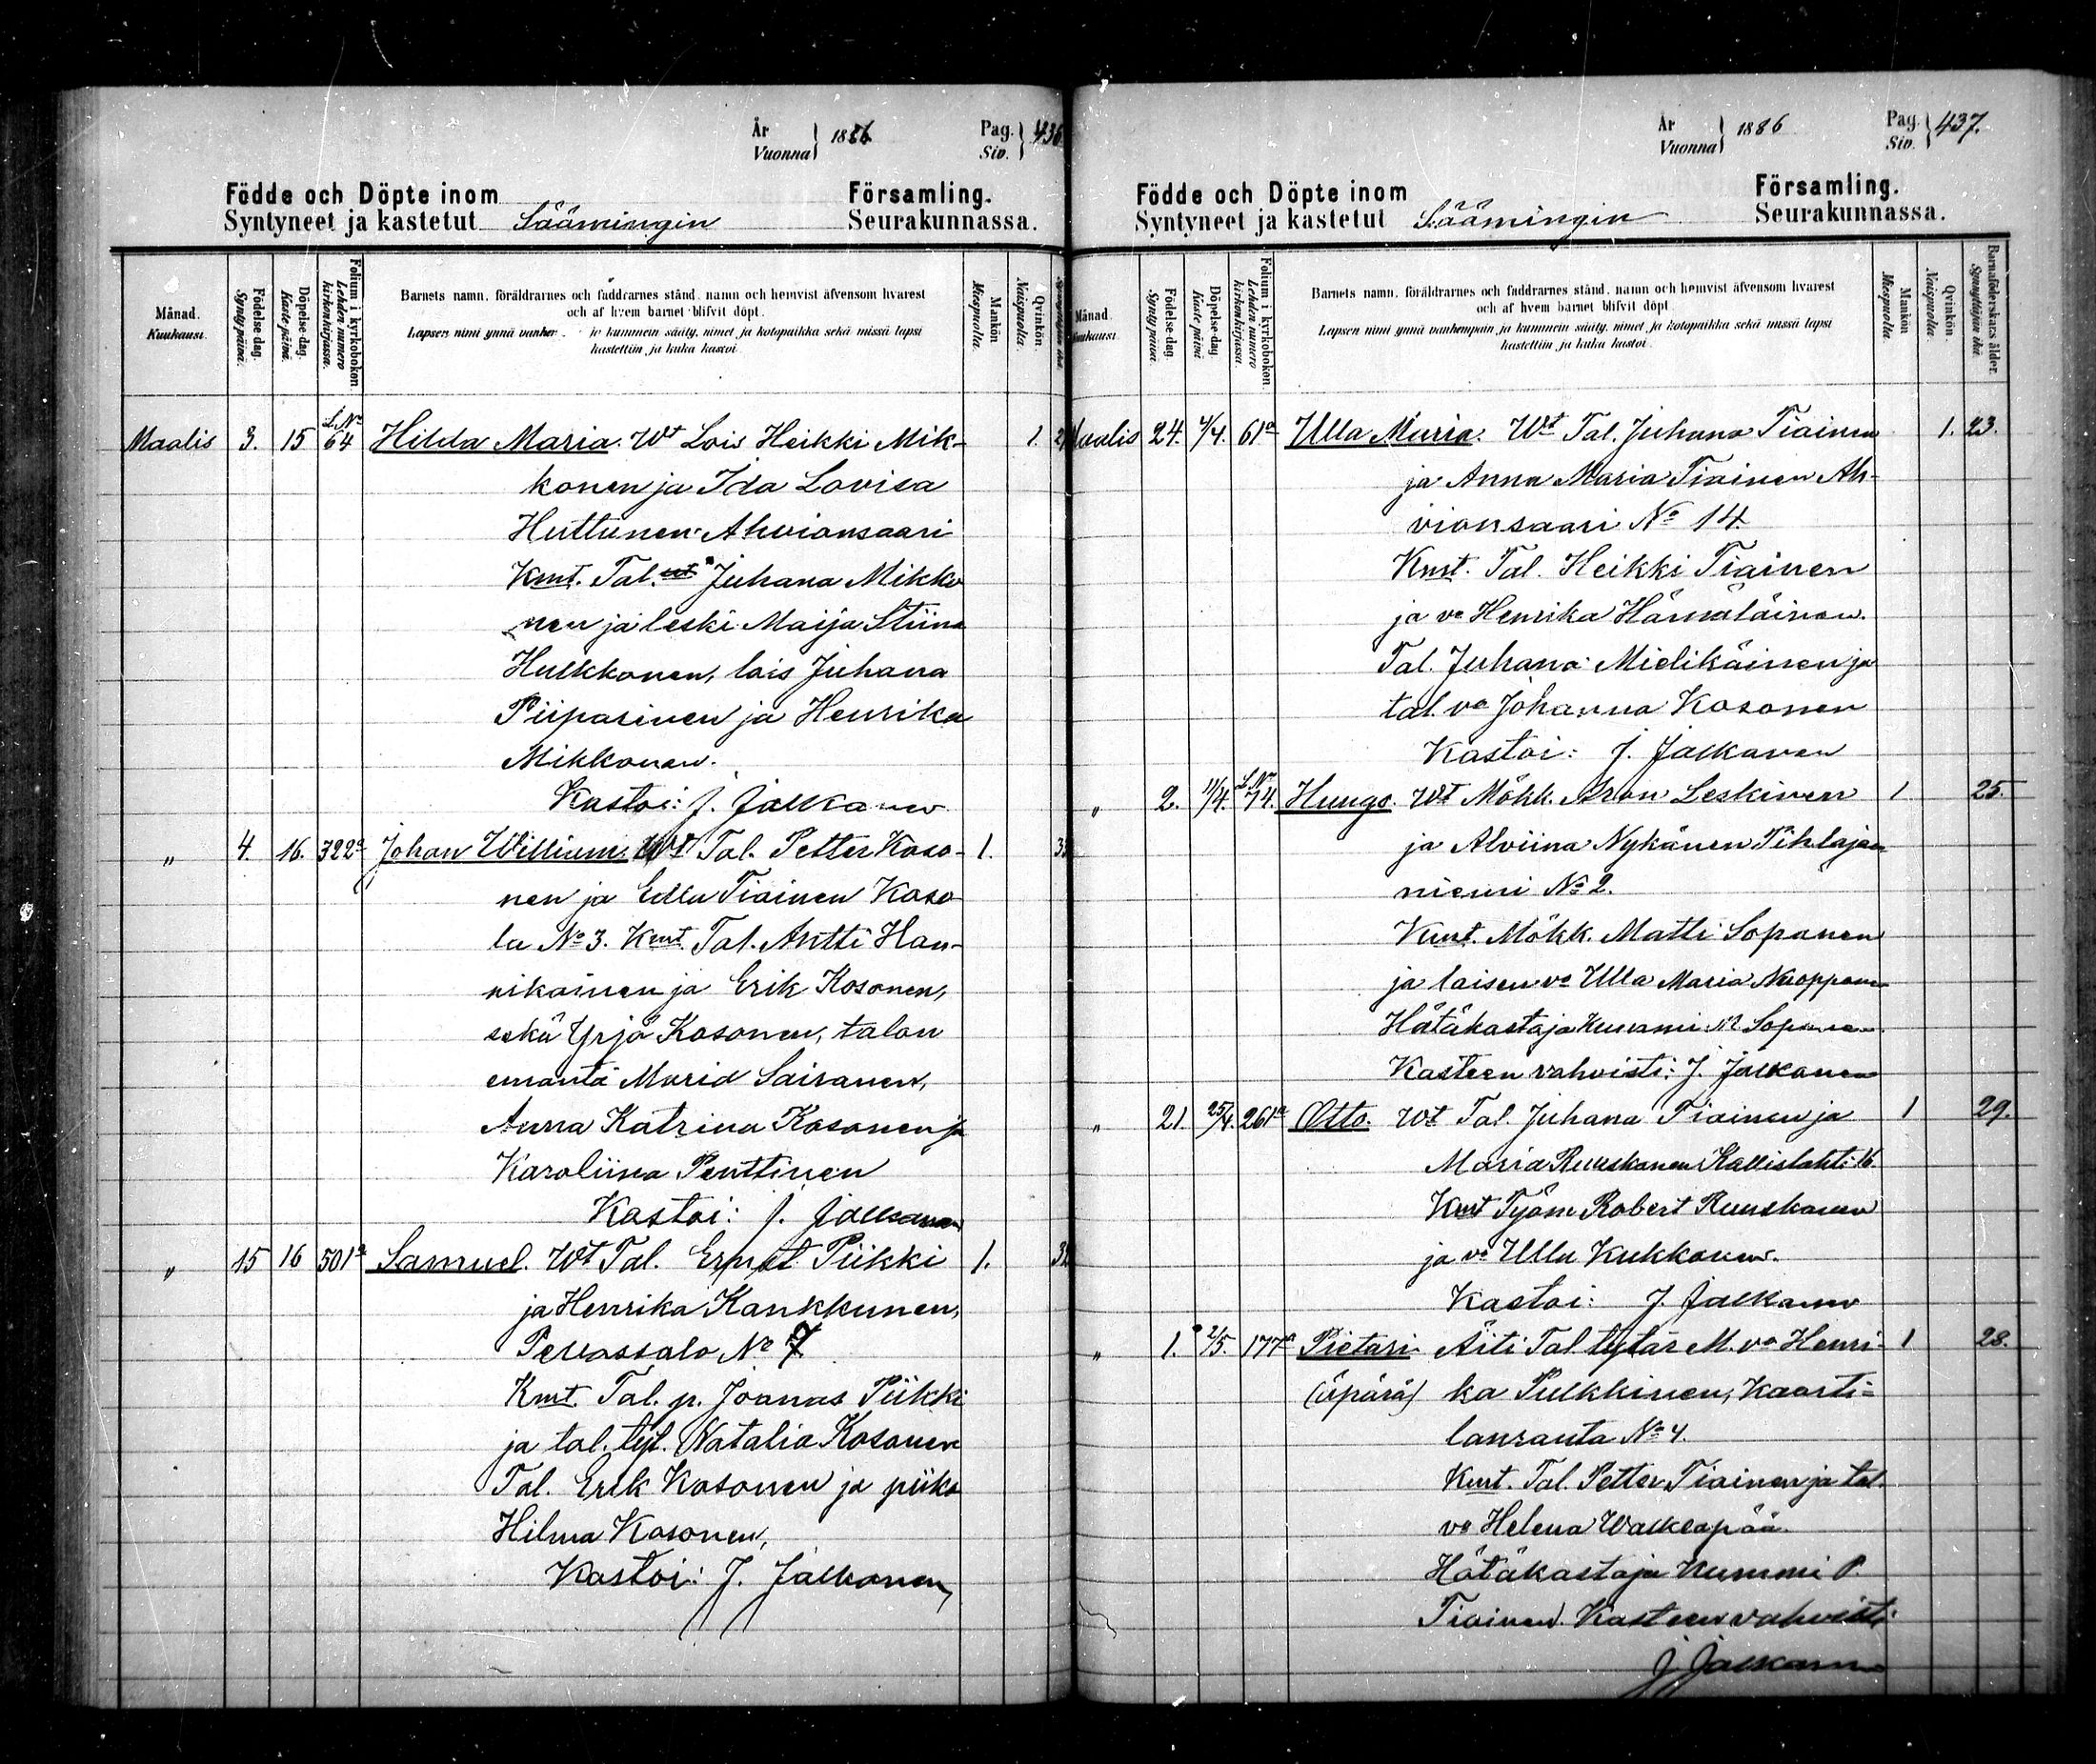 År
Vuonna } 1886
Pag.
Siv. } 436
Födde och Döpte inom Församling.
Syntyneet ja kastetut Säämingin Seurakunnassa.
Månad.
Kuukausi.
Födelse-dag.
Synty-päivä.
Döpelse-dag.
Kaste-päivä.
Folium i kyrkoboken.
Lehden numero
kirkonkirjassa.
Barnets namn, föräldrarnes och faddrarnes stånd, namn och hemvist äfvensom hvarest
och af hvem barnet blifvit döpt.
Lapsen nimi ynnä vanhem ja kummein sääty, nimet ja kotopaikka sekä missä lapsi
kastettiin ja kuka kastoi.
Mankön
Miespuolia.
Qvinkön.
Naispuolia.
L. No
Maalis 3. 15 64 Hilda Maria. Wt Lois Heikki Mik- 1.
konen ja Ida Lovisa
Huttunen. Ahvionsaari
Kmt. Tal. Juhana Mikko
nen ja leski Maija Stiina
Hulkkonen, lois Juhana
Piiparinen ja Henrika
Mikkonen.
Kastoi: J. Jalkanen
" 4. 16. 322a Johan William. Wt Tal. Petter Koso- 1.
nen ja Edla Tiainen Koso
la No 3. Kmt. Tal. Antti Han-
nikainen ja Erik Kosonen,
sekä Yrjö Kosonen, talon
emäntä Maria Sairanen,
Anna Katrina Kosonen ja
Karoliina Penttinen
Kastoi: J. Jalkanen
" 15 16 501a Samuel. Wt Tal. Ernst Piikki 1.
ja Henrika Kankkunen,
Pellossalo No 7
Kmt. Tal. p. Joonas Piikki
ja tal. tyt. Natalia Kosonen
Tal. Erik Kosonen ja piika
Hilma Kosonen,
Kastoi: J. Jalkanen
År
Vuonna } 1886
Pag.
Siv. } 437.
Födde och Döpte inom Församling.
Syntyneet ja kastetut Säämingin Seurakunnassa.
Månad.
Kuukausi.
Födelse-dag.
Synty-päivä.
Döpelse-dag.
Kaste-päivä.
Folium i kyrkoboken.
Lehden numero
kirkonkirjassa.
Barnets namn, föräldrarnes och faddrarnes stånd, namn och hemvist äfvensom hvarest
och af hvem barnet blifvit döpt.
Lapsen nimi ynnä vanhempain ja kummein sääty, nimet ja kotopaikka sekä missä lapsi
kastettiin ja kuka kastoi.
Mankön
Miespuolia.
Qvinkön.
Naispuolia.
Barnaföderskans ålder.
Synnyttäjän ikä.
Maalis 24. 4/4. 61a Ulla Maria. Wt Tal. Juhana Tiainen 1. 23.
ja Anna Maria Tiainen Ah-
vionsaari No 14.
Kmt. Tal. Heikki Tiainen
ja vo Henrika Hämäläinen.
Tal. Juhana Mielikäinen ja
tal. vo Johanna Kosonen
Kastoi: J. Jalkanen
L. No
" 2. 11/4. 74. Huugo. Wt Mökk. Aron Leskinen 1 25.
ja Alviina Nykänen Pihlajan
niemi No 2.
Kmt. Mökk. Matti Sopanen
ja loisen vo Ulla Maria Nuopponen
Hätäkastaja Kummi M. Sopanen
Kasteen vahvisti: J. Jalkanen
" 21. 25/4. 261a Otto. Wt Tal. Juhana Tiainen ja 1 29.
Maria Ruuskanen Kallislahti 16.
Kmt Työm Robert Ruuskanen
ja vo Ulla Kukkonen.
Kastoi: J. Jalkanen
" 1. 2/5. 177a Pietari Äiti Tal. tytär M. vo Henri- 1 28.
(äpärä) ka Pulkkinen, Kaarti-
lanranta No 4.
Kmt. Tal. Petter Tiainen ja tal.
vo Helena Walkeapää.
Hätäkastaja Kummi P.
Tiainen. Kasteen vahvisti:
J. Jalkanen